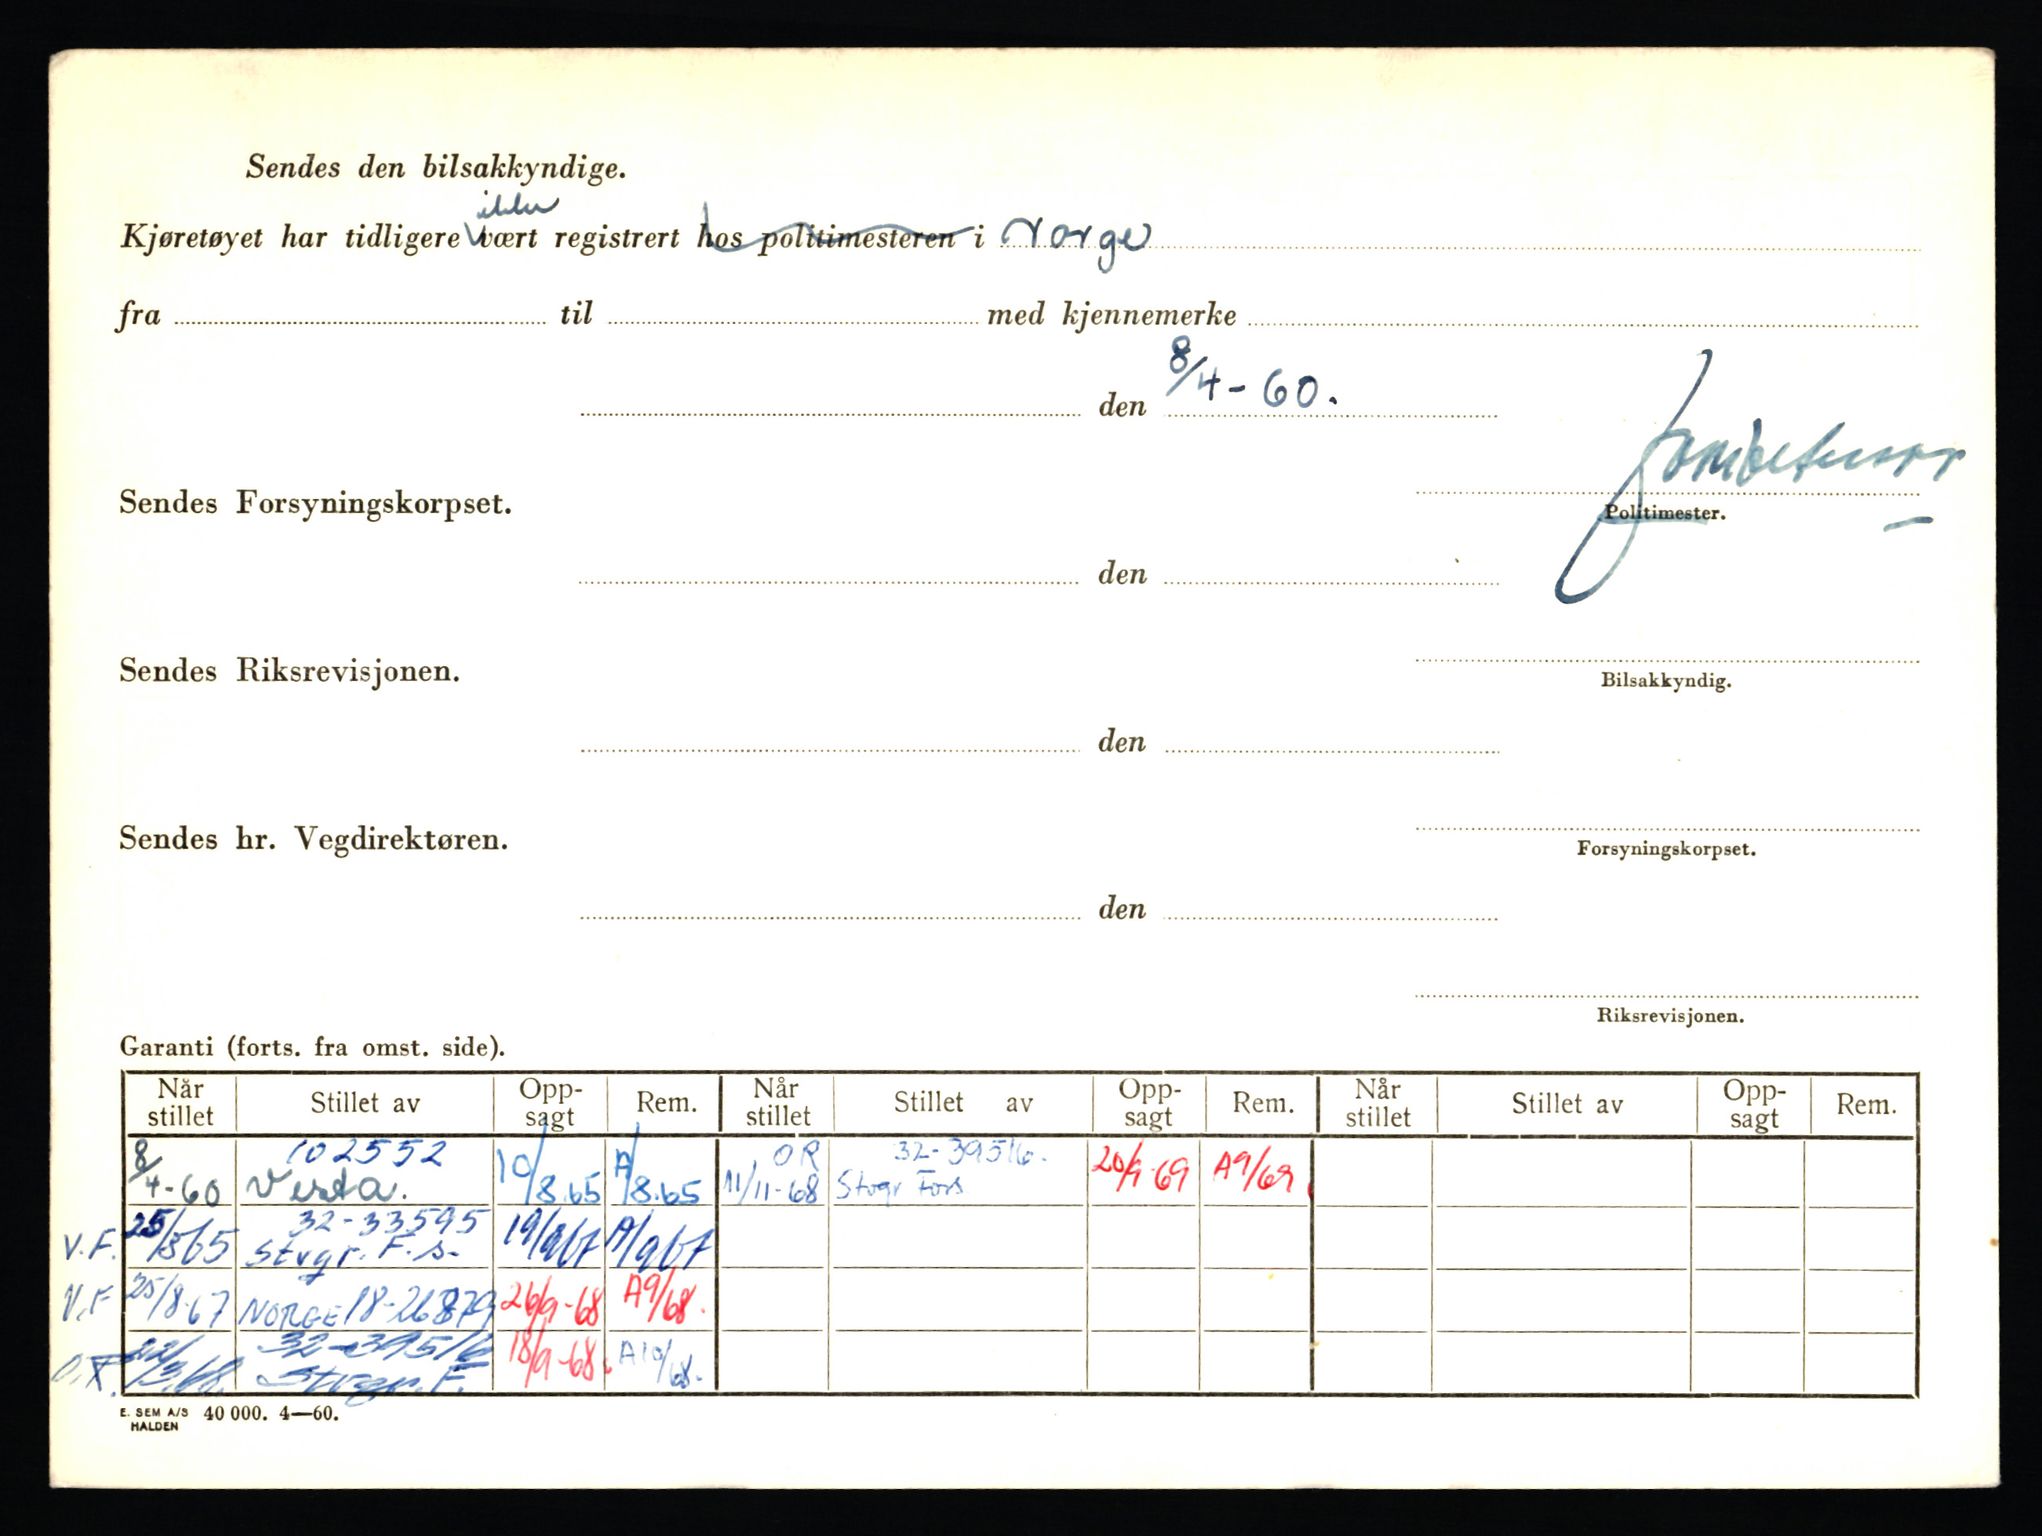 Sendes den bilsakkyndige.
ikke
Kjøretøyet har tidligere vært registrert hos politimesteren i Norge
fra til med kjennemerke
den 8/4-60.
Sendes Forsyningskorpset.
Politimester.
den
Sendes Riksrevisjonen.
Bilsakkyndig.
den
Sendes hr. Vegdirektøren.
Forsyningskorpset.
den
Riksrevisjonen.
Garanti (forts. fra omst. side).
Når stillet Stillet av Opp-sagt Rem. Når stillet Stillet av Opp-sagt Rem. Når stillet Stillet av Opp-sagt Rem.
8/4-60 102552 Vesta. 10/8.65 A/8.65 OR 11/11-68 32-39516. Stvgr Fors 20/9-69 A9/69
V.F. 25/865 32-33595 Stvgr. F.s. 19/967 A/967
V.F 25/8-67 NORGE 18-26879 26/9-68 A9/68.
32-39516 Stvgr. F. 18/9-68. A10/68.
E. SEM A/S HALDEN 40 000. 4—60.